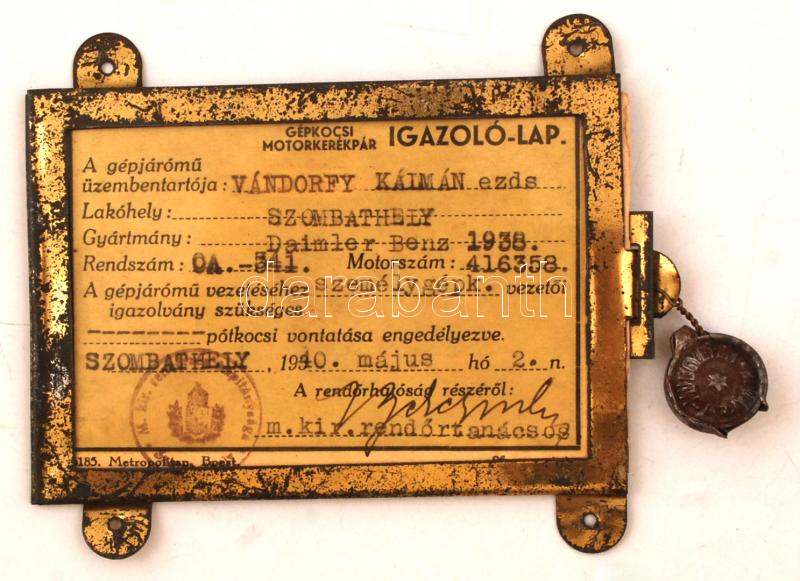 GÉPKOCSI
MOTORKERÉKPÁR IGAZOLÓ-LAP.
A gépjárómű
üzembentartója: VÁNDORFY KÁLMÁN ezds
Lakóhely: SZOMBATHELY
Gyártmány: Daimler Benz 1938.
Rendszám: OA.-341. Motorszám: 416358.
A gépjárómű vezetéséhez személygépk. vezetői
igazolvány szükséges
pótkocsi vontatása engedélyezve.
SZOMBATHELY, 1940. május hó 2. n.
A rendőrhatóság részéről:
m.kir.rendőrtanácsos
185. Metropolitan, Bpest
darabanth